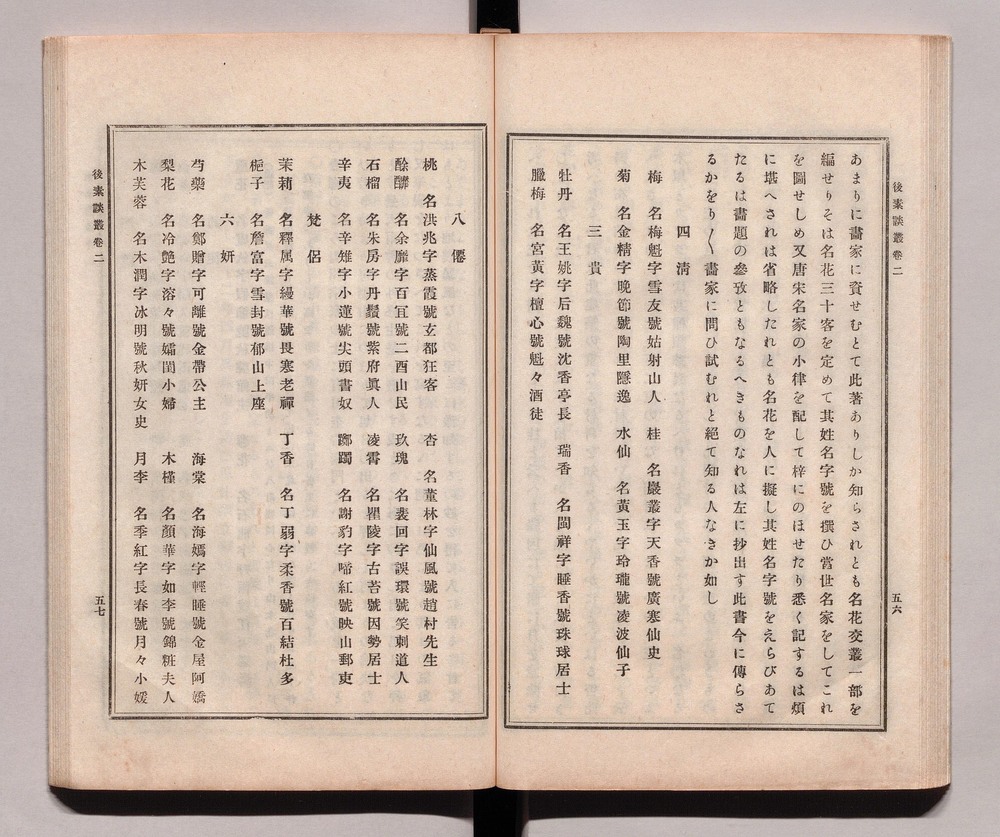 後素談叢卷二
五六
あまりに畫家に資せむとて此著ありしか知らされとも名花交叢一部を
編せりそは名花三十客を定めて其姓名字號を撰ひ當世名家をしてこれ
を圖せしめ又唐宋名家の小律を配して梓にのほせたり悉く記するは煩
に堪へされは省略したれとも名花を人に擬し其姓名字號をえらびあて
たるは畫題の參攷ともなるへきものなれは左に抄出す此書今に傳らさ
るかをり〳〵畫家に問ひ試むれと絕て知る人なきか如し
四 淸
梅 名梅魁字雪友號姑射山人 桂 名巖叢字天香號廣寒仙史
菊 名金精字晚節號陶里隱逸 水仙 名黃玉字玲瓏號凌波仙子
三 貴
牡丹 名王姚字后魏號沈香亭長 瑞香 名閩祥字睡香號珠球居士
臘梅 名宮黃字檀心號魁々酒徒
八 僊
桃 名洪兆字蒸霞號玄都狂客 杏 名董林字仙風號趙村先生
酴醾 名余靡字百宜號二酉山民 玫瑰 名裴回字誤環號笑刺道人
石榴 名朱房字丹鬚號紫府眞人 凌霄 名瞿陵字古苔號因勢居士
辛夷 名辛雉字小蓮號尖頭書奴 躑躅 名謝豹字啼紅號映山郵吏
梵 侶
茉莉 名釋属字縵華號畏寒老禪 丁香 名丁弱字柔香號百結杜多
梔子 名詹富字雪封號郁山上座
六 姸
芍藥 名鄭贈字可離號金帶公主 海棠 名海嫣字輕睡號金屋阿嬌
梨花 名冷艶字溶々號孀閨小婦 木槿 名顏華字如李號錦粧夫人
木芙蓉 名木潤字冰明號秋姸女史 月季 名季紅字長春號月々小媛
後素談叢卷二
五七